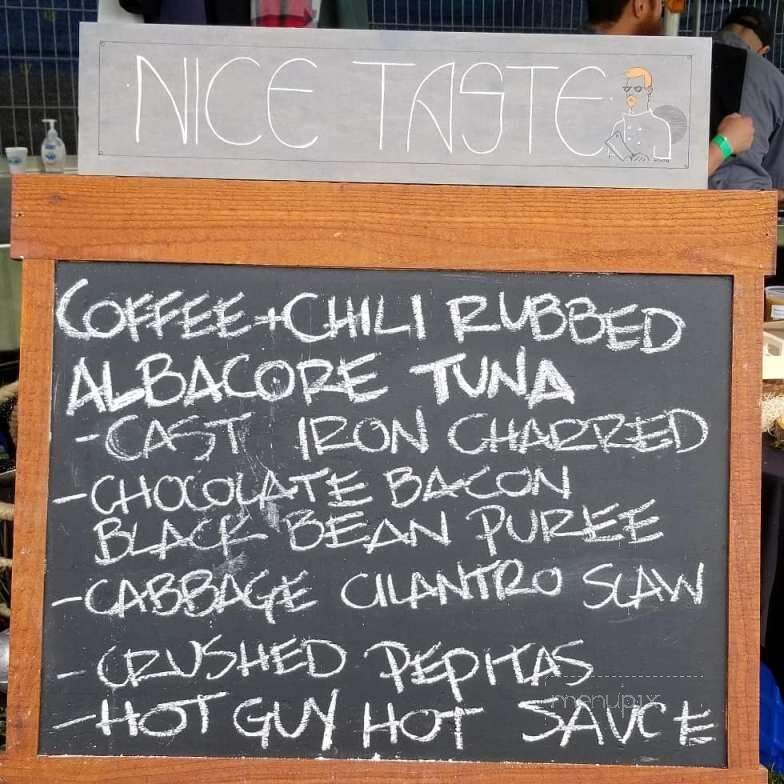 NICE TASTE
COFFEE + CHILI RUBBED
ALBACORE TUNA
- CAST IRON CHARRED
- CHOCOLATE BACON
BLACK BEAN PUREE
- CABBAGE CILANTRO SLAW
- CRUSHED PEPITAS
menupix
- HOT GUY HOT SAUCE